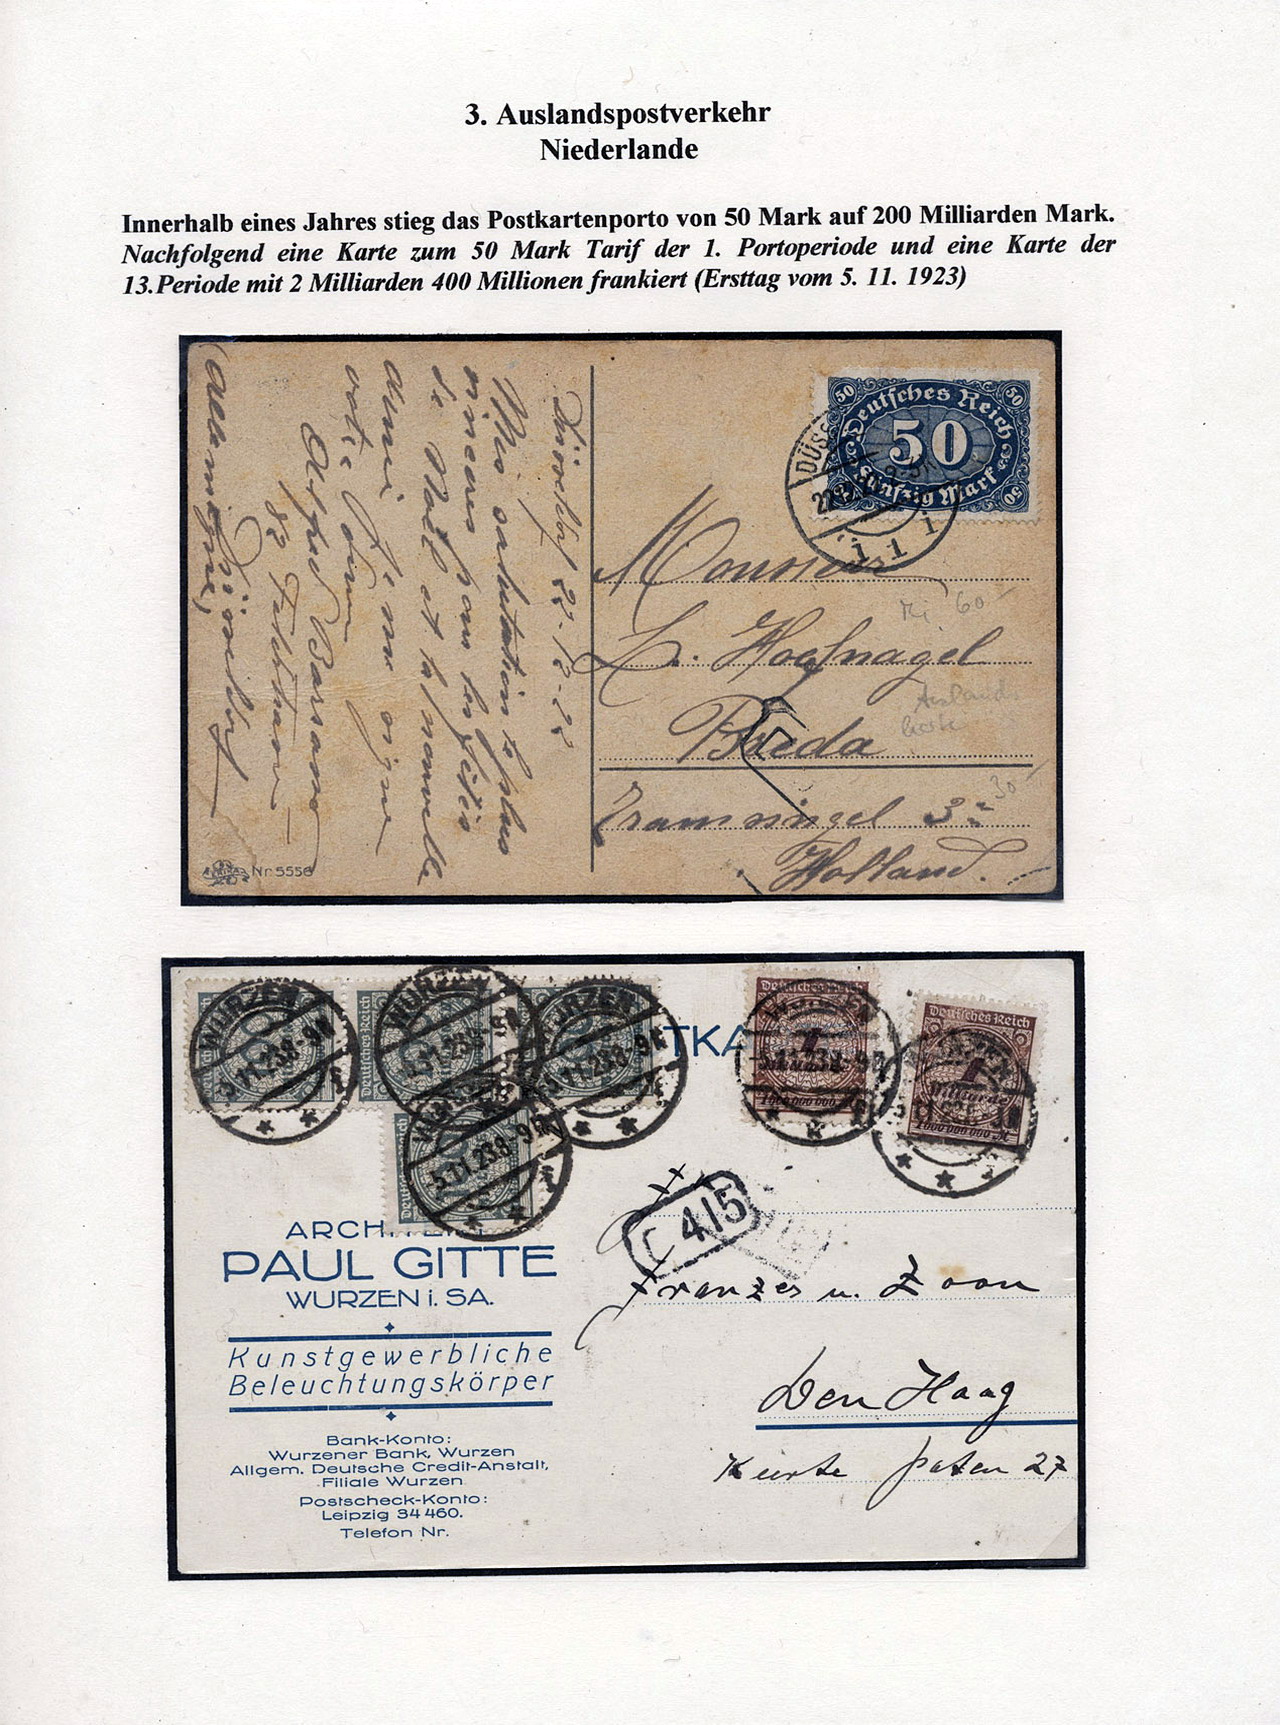 3. Auslandspostverkehr
Niederlande
Innerhalb eines Jahres stieg das Postkartenporto von 50 Mark auf 200 Milliarden Mark.
Nachfolgend eine Karte zum 50 Mark Tarif der 1. Portoperiode und eine Karte der
13.Periode mit 2 Milliarden 400 Millionen frankiert (Ersttag vom 5. 11. 1923)
50 50
Deutsches Reich
50
Fünfzig Mark
50
DÜSS
1 1 1
Düsseldorf 22-12-22
Mes salutations les plus
sinceres pour les fêtes
de Noël et la nouvelle
Alfred Bassano
82
(Allemagne)
Monsieur
L. Hoefnagel
Breda
Tramsingel 3
Holland.
Mi 60-
Auslands
karte
30-
Nr 5556
WURZEN
5.11.23.8-9V
WURZEN
WURZEN
5.11.23.8-9V
WURZEN
5.11.23.8-9V
Deutsches Reich
1
1000 000 000 M
Deutsches Reich
1
Milliarde
1000 000 000 M
TKA
C 4/5
ARCH
PAUL GITTE
WURZEN i. SA.
Kunstgewerbliche
Beleuchtungskörper
Bank-Konto:
Wurzener Bank, Wurzen
Allgem. Deutsche Credit-Anstalt,
Filiale Wurzen
Postscheck-Konto:
Leipzig 34 460.
Telefon Nr.
Franzes u. Zoon
Den Haag
Kurte poten 27